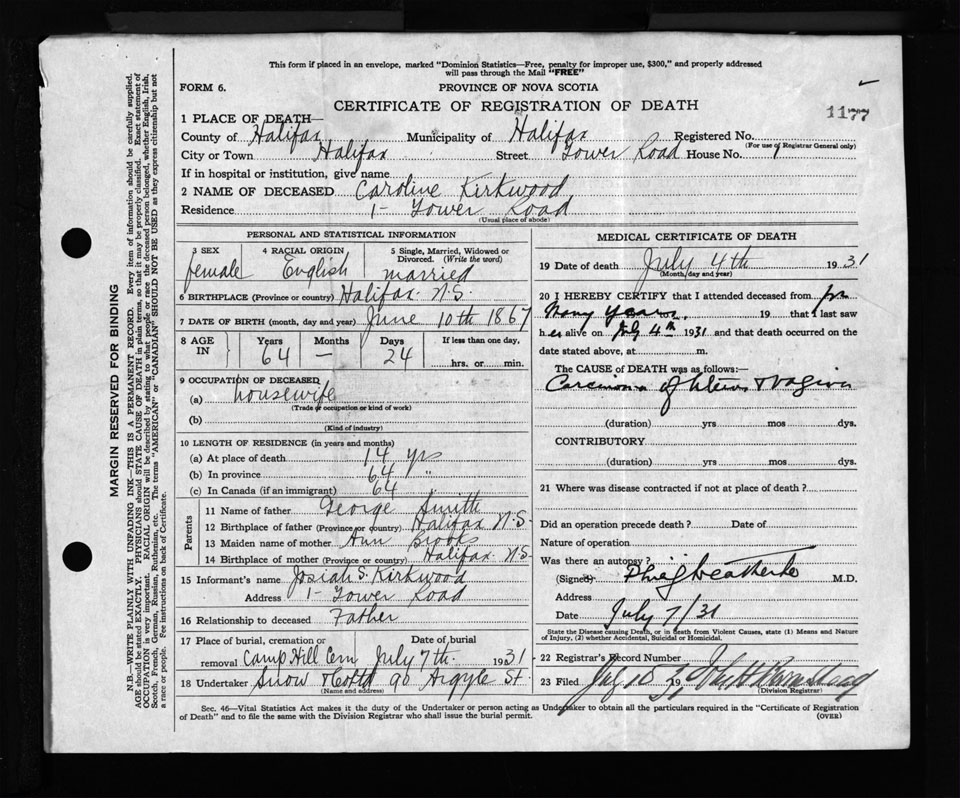 This form if placed in an envelope, marked "Dominion Statistics—Free, penalty for improper use, $300," and properly addressed
will pass through the Mail "FREE"
FORM 6. PROVINCE OF NOVA SCOTIA
CERTIFICATE OF REGISTRATION OF DEATH
1177
1 PLACE OF DEATH—
County of Halifax Municipality of Halifax Registered No.
(For use of Registrar General only)
City or Town Halifax Street Tower Road House No. 1
If in hospital or institution, give name
2 NAME OF DECEASED Caroline Kirkwood
Residence 1- Tower Road
(Usual place of abode)
PERSONAL AND STATISTICAL INFORMATION
3 SEX 4 RACIAL ORIGIN 5 Single, Married, Widowed or
Divorced. (Write the word)
female English married
6 BIRTHPLACE (Province or country) Halifax. N.S.
7 DATE OF BIRTH (month, day and year) June 10th 1867
8 AGE IN Years Months Days If less than one day,
64 — 24 hrs. or min.
9 OCCUPATION OF DECEASED
(a) housewife
(Trade or occupation or kind of work)
(b)
(Kind of industry)
10 LENGTH OF RESIDENCE (in years and months)
(a) At place of death 14 yrs
(b) In province 64 "
(c) In Canada (if an immigrant) 64
Parents
11 Name of father George Smith
12 Birthplace of father (Province or country) Halifax N.S.
13 Maiden name of mother Ann Brooks
14 Birthplace of mother (Province or country) Halifax. N.S.
15 Informant's name Josiah S. Kirkwood
Address 1- Tower Road
16 Relationship to deceased Father
17 Place of burial, cremation or Date of burial
removal Camp Hill Cem July 7th. 1931
18 Undertaker Snow & Co Ltd 90 Argyle St.
(Name and address)
MEDICAL CERTIFICATE OF DEATH
19 Date of death July 4th 1931
(Month, day and year)
20 I HEREBY CERTIFY that I attended deceased from for
many years, 19 that I last saw
her alive on July 4th 1931 and that death occurred on the
date stated above, at m.
The CAUSE OF DEATH was as follows:—
Carcinoma of Uterus & vagina
(duration) yrs mos dys.
CONTRIBUTORY
(duration) yrs mos dys.
21 Where was disease contracted if not at place of death?
Did an operation precede death? Date of
Nature of operation
Was there an autopsy?
(Signed) M.D.
Address
Date July 7/31
State the Disease causing Death, or in death from Violent Causes, state (1) Means and Nature
of Injury, (2) whether Accidental, Suicidal or Homicidal.
22 Registrar's Record Number
23 Filed July 10 19
(Division Registrar)
Sec. 46—Vital Statistics Act makes it the duty of the Undertaker or person acting as Undertaker to obtain all the particulars required in the "Certificate of Registration
of Death" and to file the same with the Division Registrar who shall issue the burial permit. (OVER)
MARGIN RESERVED FOR BINDING
N.B.—WRITE PLAINLY WITH UNFADING INK—THIS IS A PERMANENT RECORD. Every item of information should be carefully supplied.
AGE should be stated EXACTLY. PHYSICIANS should STATE CAUSE OF DEATH in plain terms, so that it may be properly classified. Exact statement of
OCCUPATION is very important. RACIAL ORIGIN will be described by stating to what people or race the deceased person belonged, whether English, Irish,
Scotch, French, German, Russian, Ruthenian, etc. The terms "AMERICAN" or "CANADIAN" SHOULD NOT BE USED as they express citizenship but not
a race or people. Fee instructions on back of Certificate.